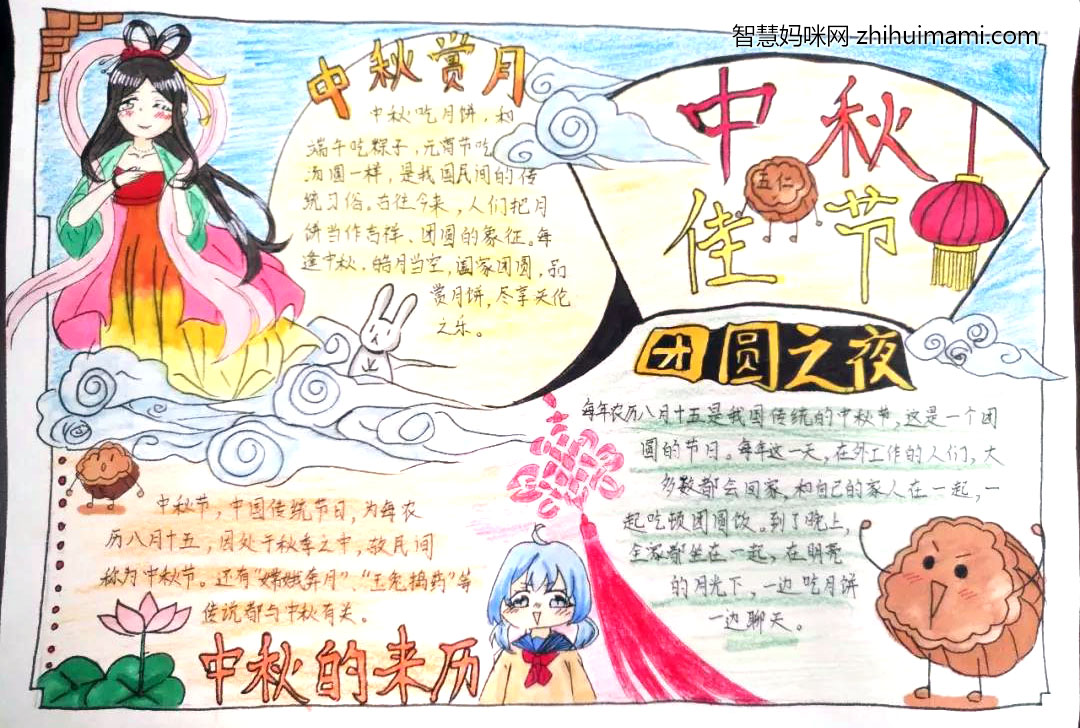 智慧妈咪网 zhihuimami.com
中秋赏月
中秋吃月饼，和
端午吃粽子，元宵节吃
汤圆一样，是我国民间的传
统习俗。古往今来，人们把月
饼当作吉祥、团圆的象征。每
逢中秋，皓月当空，阖家团圆，品
赏月饼，尽享天伦
之乐。
中秋
五仁
佳节
团圆之夜
每年农历八月十五是我国传统的中秋节，这是一个团
圆的节日。每年这一天，在外工作的人们，大
多数都会回家，和自己的家人在一起，一
起吃顿团圆饭。到了晚上，
全家都坐在一起，在明亮
的月光下，一边吃月饼
一边聊天。
中秋节，中国传统节日，为每农
历八月十五，因处于秋季之中，故民间
称为中秋节。还有“嫦娥奔月”、“玉兔捣药”等
传说都与中秋有关。
中秋的来历